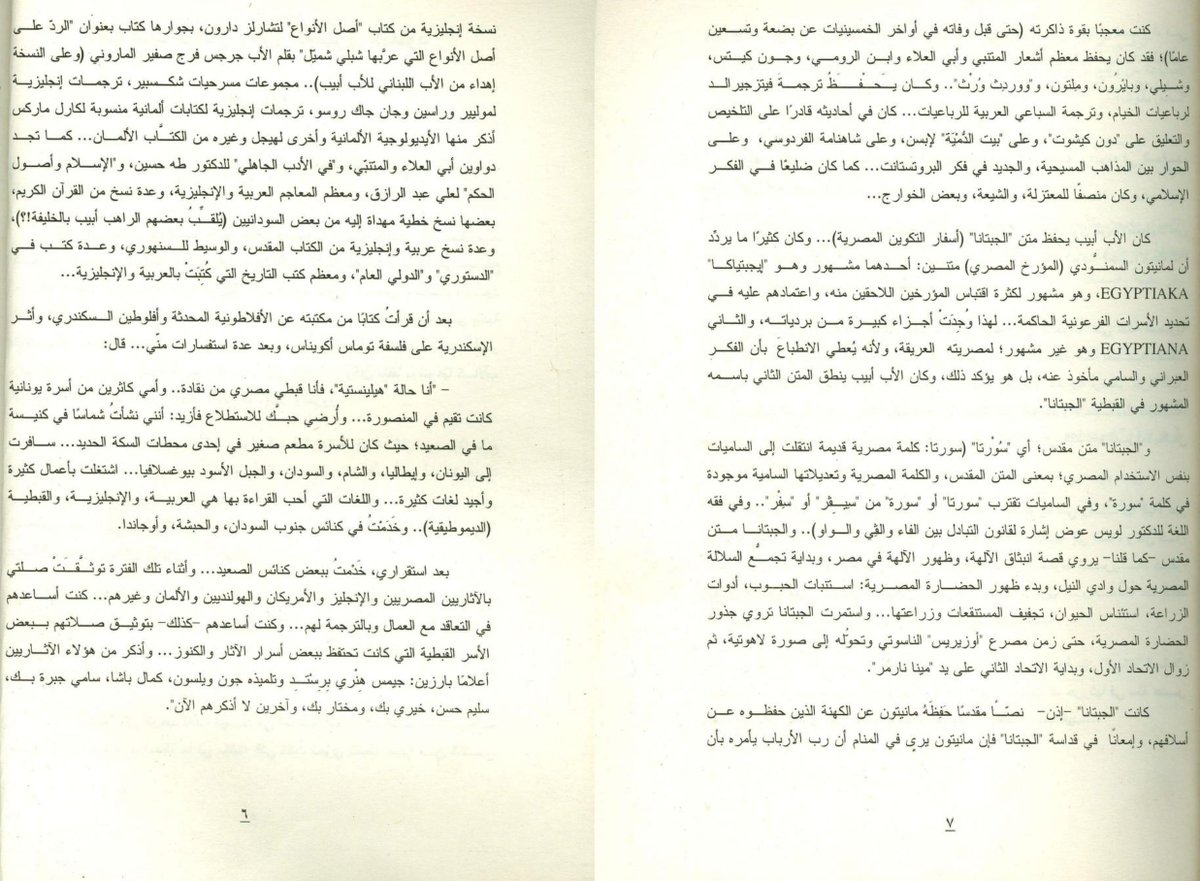 نسخة إنجليزية من كتاب "أصل الأنواع" لتشارلز دارون، بجوارها كتاب بعنوان "الردّ على
أصل الأنواع التي عرَّبها شبلي شميّل" بقلم الأب جرجس فرج صفير الماروني (وعلى النسخة
إهداء من الأب اللبناني للأب أبيب).. مجموعات مسرحيات شكسبير، ترجمات إنجليزية
لموليير وراسين وجان جاك روسو، ترجمات إنجليزية لكتابات ألمانية منسوبة لكارل ماركس
أذكر منها الأيديولوجية الألمانية وأخرى لهيجل وغيره من الكتَّاب الألمان... كما تجد
دواوين أبي العلاء والمتنبّي، و"في الأدب الجاهلي" للدكتور طه حسين، و"الإسلام وأصول
الحكم" لعلي عبد الرازق، ومعظم المعاجم العربية والإنجليزية، وعدة نسخ من القرآن الكريم،
بعضها نسخ خطية مهداة إليه من بعض السودانيين (يُلقبُّ بعضهم الراهب أبيب بالخليفة!؟)،
وعدة نسخ عربية وإنجليزية من الكتاب المقدس، والوسيط للسنهوري، وعدة كتب في
"الدستوري" و"الدولي العام"، ومعظم كتب التاريخ التي كُتِبَتْ بالعربية والإنجليزية...
بعد أن قرأتُ كتابًا من مكتبته عن الأفلاطونية المحدثة وأفلوطين السكندري، وأثر
الإسكندرية على فلسفة توماس أكويناس، وبعد عدة استفسارات منّي... قال:
- "أنا حالة "هيلينستية"، فأنا قبطي مصري من نقادة.. وأمي كاثرين من أسرة يونانية
كانت تقيم في المنصورة... وأُرضي حبكَّ للاستطلاع فأزيد: أنني نشأتُ شماسًا في كنيسة
ما في الصعيد؛ حيث كان للأسرة مطعم صغير في إحدى محطات السكة الحديد... سافرت
إلى اليونان، وإيطاليا، والشام، والسودان، والجبل الأسود بيوغسلافيا... اشتغلت بأعمال كثيرة
وأجيد لغات كثيرة... واللغات التي أحب القراءة بها هي العربية، والإنجليزية، والقبطية
(الديموطيقية).. وخَدَمْتُ في كنائس جنوب السودان، والحبشة، وأوجاندا.
بعد استقراري، خَدْمتُ ببعض كنائس الصعيد... وأثناء تلك الفترة توثقَّتْ صلتي
بالآثاريين المصريين والإنجليز والأمريكان والهولنديين والألمان وغيرهم... كنت أساعدهم
في التعاقد مع العمال وبالترجمة لهم... وكنت أساعدهم -كذلك- بتوثيق صلاتهم ببعض
الأسر القبطية التي كانت تحتفظ ببعض أسرار الآثار والكنوز... وأذكر من هؤلاء الآثاريين
أعلامًا بارزين: جيمس هنْري بِرِسْتد وتلميذه جون ويلسون، كمال باشا، سامي جبرة بك،
سليم حسن، خيري بك، ومختار بك، وآخرين لا أذكرهم الآن".
٦
كنت معجبًا بقوة ذاكرته (حتى قبل وفاته في أواخر الخمسينيات عن بضعة وتسعين
عامًا)؛ فقد كان يحفظ معظم أشعار المتنبي وأبي العلاء وابن الرومي، وجون كيتس،
وشيلي، وبايْرُون، ومِلتون، و"ووردث وُرْث".. وكان يَحفَظُ ترجمة فيتزجيرالد
لرباعيات الخيام، وترجمة السباعي العربية للرباعيات... كان في أحاديثه قادرًا على التلخيص
والتعليق على "دون كيشوت"، وعلى "بيت الدُّميَة" لإبسن، وعلى شاهنامة الفردوسي، وعلى
الحوار بين المذاهب المسيحية، والجديد في فكر البروتستانت... كما كان ضليعًا في الفكر
الإسلامي، وكان منصفًا للمعتزلة، والشيعة، وبعض الخوارج...
كان الأب أبيب يحفظ متن "الجبتانا" (أسفار التكوين المصرية)... وكان كثيرًا ما يردّد
أن لمانيتون السمنُّودي (المؤرخ المصري) متنين: أحدهما مشهور وهو "إيجبتياكا"
EGYPTIAKA، وهو مشهور لكثرة اقتباس المؤرخين اللاحقين منه، واعتمادهم عليه في
تحديد الأسرات الفرعونية الحاكمة... لهذا وُجِدَتْ أجزاء كبيرة من بردياته، والثاني
EGYPTIANA وهو غير مشهور؛ لمصريته العريقة، ولأنه يُعطي الانطباعَ بأن الفكر
العبراني والسامي مأخوذ عنه، بل هو يؤكد ذلك، وكان الأب أبيب ينطق المتن الثاني باسمه
المشهور في القبطية "الجبتانا".
و"الجبتانا" متن مقدس؛ أي "سُوْرتا" (سورتا: كلمة مصرية قديمة انتقلت إلى الساميات
بنفس الاستخدام المصري؛ بمعنى المتن المقدس، والكلمة المصرية وتعديلاتها السامية موجودة
في كلمة "سورة"، وفي الساميات تقترب "سورتا" أو "سورة" من "سيڤر" أو "سِفْر".. وفي فقه
اللغة للدكتور لويس عوض إشارة لقانون التبادل بين الفاء والڤِي والواو)... والجبتانا متن
مقدس -كما قلنا- يروي قصة انبثاق الآلهة، وظهور الآلهة في مصر، وبداية تجمعُّ السلالة
المصرية حول وادي النيل، وبدء ظهور الحضارة المصرية: استنبات الحبوب، أدوات
الزراعة، استئناس الحيوان، تجفيف المستنقعات وزراعتها... واستمرت الجبتانا تروي جذور
الحضارة المصرية، حتى زمن مصرع "أوزيريس" الناسوتي وتحوّله إلى صورة لاهوتية، ثم
زوال الاتحاد الأول، وبداية الاتحاد الثاني على يد "مينا نارمر".
كانت "الجبتانا" -إذن- نصًا مقدسًا حَفِظَهُ مانيتون عن الكهنة الذين حفظوه عن
أسلافهم، وإمعانًا في قداسة "الجبتانا" فإن مانيتون يرى في المنام أن رب الأرباب يأمره بأن
٧